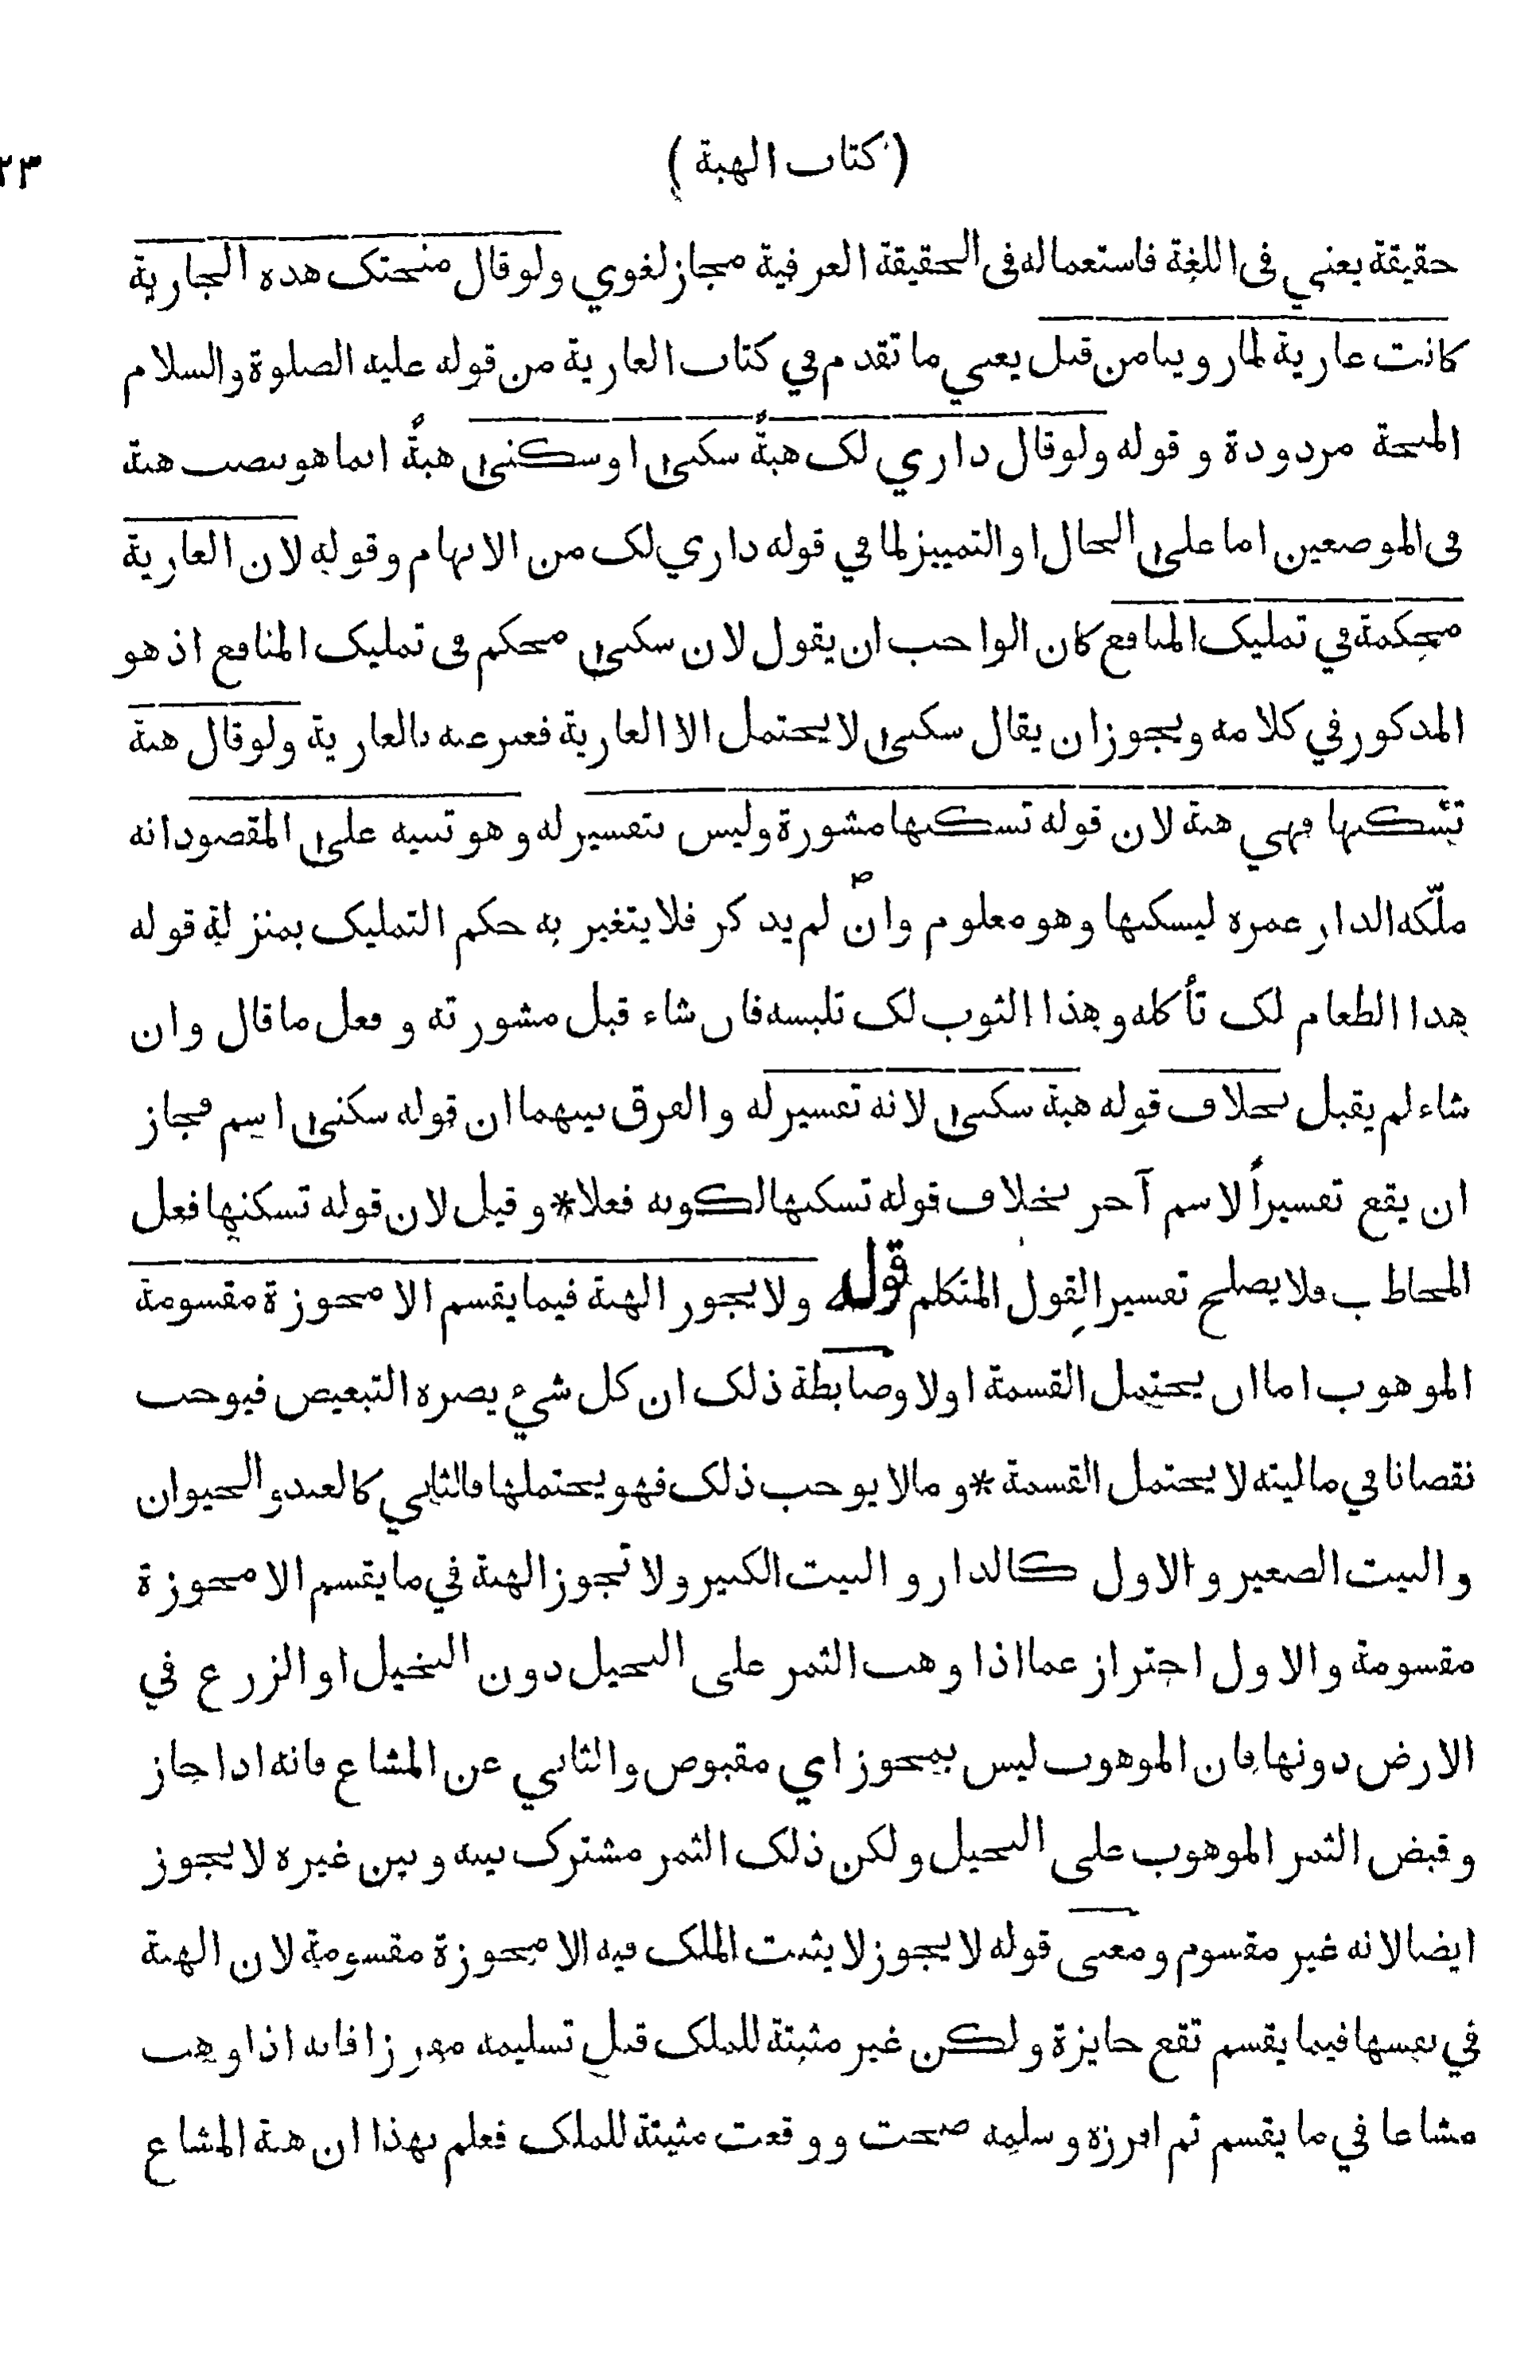 (كتاب الهبة)
٢٣
حقيقة يعني في اللغة فاستعماله في الحقيقة العرفية مجاز لغوي ولو قال منحتك هذه الجارية
كانت عارية لما روينا من قبل يعني ما تقدم في كتاب العارية من قوله عليه الصلوة والسلام
المنحة مردودة و قوله ولو قال داري لك هبةً سكنى او سكنى هبةً انما هو بنصب هبة
في الموضعين اما على الحال او التمييز لما في قوله داري لك من الابهام وقوله لان العارية
محكمة في تمليك المنافع كان الواجب ان يقول لان سكنى محكم في تمليك المنافع اذ هو
المذكور في كلامه ويجوز ان يقال سكنى لا يحتمل الا العارية فعبر عنه بالعارية ولو قال هبة
تسكنها فهي هبة لان قوله تسكنها مشورة وليس بتفسير له وهو تنبيه على المقصود انه
ملّكه الدار عمره ليسكنها وهو معلوم وان لم يذكر فلا يتغير به حكم التمليك بمنزلة قوله
هذا الطعام لك تأكله وهذا الثوب لك تلبسه فان شاء قبل مشورته و فعل ما قال وان
شاء لم يقبل بخلاف قوله هبة سكنى لانه تفسير له والفرق بينهما ان قوله سكنى اسم فجاز
ان يقع تفسيراً لاسم آخر بخلاف قوله تسكنها لكونه فعلا * و قيل لان قوله تسكنها فعل
المخاطب فلا يصلح تفسيرا لقول المتكلم قوله ولا يجوز الهبة فيما يقسم الا محوزة مقسومة
الموهوب اما ان يحتمل القسمة او لا وضابطة ذلك ان كل شيء يضره التبعيض فيوجب
نقصانا في ماليته لا يحتمل القسمة * و مالا يوجب ذلك فهو يحتملها فالثاني كالعبد والحيوان
والبيت الصغير والاول كالدار والبيت الكبير ولا تجوز الهبة في ما يقسم الا محوزة
مقسومة والاول احتراز عما اذا وهب الثمر على النخيل دون النخيل او الزرع في
الارض دونها فان الموهوب ليس بمحوز اي مقبوض والثاني عن المشاع فانه اذا حاز
وقبض الثمر الموهوب على النخيل ولكن ذلك الثمر مشترك بينه وبين غيره لا يجوز
ايضا لانه غير مقسوم ومعنى قوله لا يجوز لا يثبت الملك فيه الا محوزة مقسومة لان الهبة
في نفسها فيما يقسم تقع جايزة ولكن غير مثبتة للملك قبل تسليمه مفرزا فانه اذا وهب
مشاعا في ما يقسم ثم افرزه وسلمه صحت ووقعت مثبتة للملك فعلم بهذا ان هبة المشاع